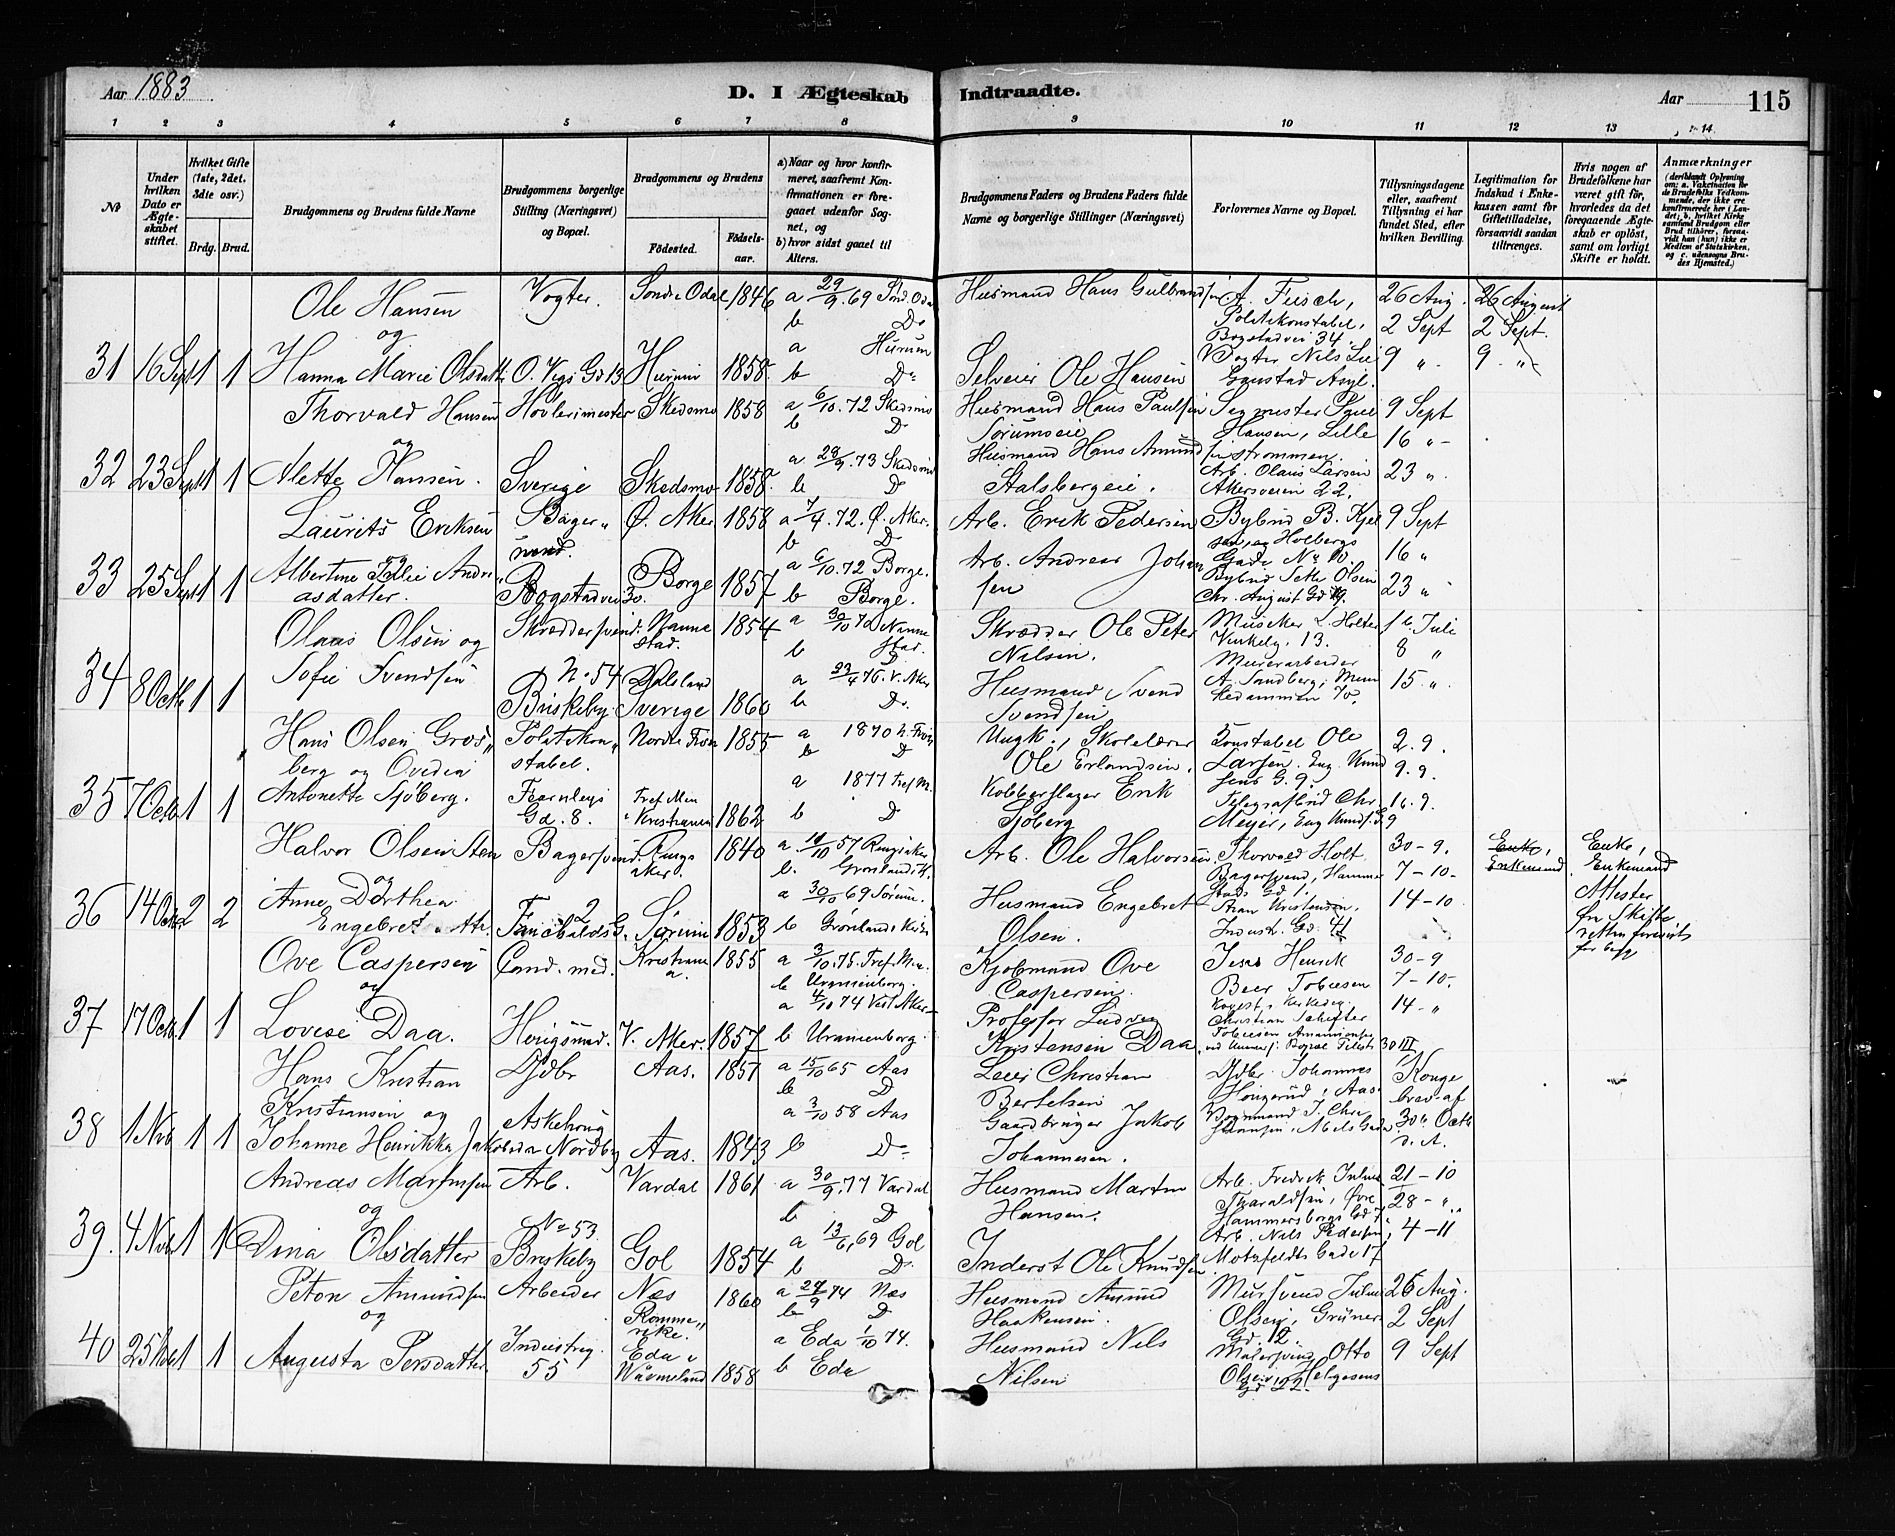 Aar 1883
D. I Ægteskab
Indtraadte.
Aar
115
1 2 3 4 5 6 7 8 9 10 11 12 13 14
No
Under hvilken Dato er Ægteskabet stiftet.
Hvilket Gifte (1ste, 2det, 3die osv.)
Brdg. Brud.
Brudgommens og Brudens fulde Navne
Brudgommens borgerlige Stilling (Næringsvei) og Bopæl.
Brudgommens og Brudens
Födested. Födsels-aar.
a) Naar og hvor konfirmeret, saafremt Konfirmationen er foregaaet udenfor Sognet, og
b) hvor sidst gaaet til Alters.
Brudgommens Faders og Brudens Faders fulde Navne og borgerlige Stillinger (Næringsvei)
Forlovernes Navne og Bopæl.
Tillysningsdagene eller, saafremt Tillysning ei har fundet Sted, efter hvilken Bevilling.
Legitimation for Indskud i Enkekassen samt for Giftetilladelse, forsaavidt saadan tiltrænges.
Hvis nogen af Brudefolkene har været gift för, hvorledes da det foregaaende Ægteskab er oplöst, samt om lovligt Skifte er holdt.
Anmærkninger
Ole Hansen Vogter. Sondre Odal 1846 a 29/9 69 Sond. Odal
Husmand Hans Gulbrandsen
Politikonstabel, Bogstadvei 34.
26 Aug. 26 August
og b Do 2 Sept 2 Sept.
31 16 Sept 1 1 Hanna Marie Olsdatter O. Vogts Gd 13 Hurum 1858. a Hurum b Do
Selveier Ole Hansen
Vogter Nils Lie Gaustad Asyl.
9 " 9 "
Thorvald Hansen Hövlerimester Skedsmo 1858 a 6/10.72 Skedsmo b Do
Husmand Hans Paulsen Sörumseie
Hansen, Lille strömmen.
9 Sept
og 16 "
32 23 Sept 1 1 Alette Hansen. Sverige Skedsmo 1858. a 28/9.73 Skedsmo b D
Husmand Hans Amundsen Stalsbergeie.
Arb. Olaus Larsen Akersveien 22.
23 "
Laurits Eriksen Bager- svend. Ø. Aker 1858 a 7/4.72. Ø. Aker. b D
Arb. Erik Pedersen
Bybud B. Kjel
9 Sept
og Holbergs Gade No 10. 16 "
33 25 Sept 1 1 Albertine Julie Andreasdatter. Bogstadvei 30. Borge 1857 a 6/10.72 Borge. b Borge.
Arb. Andreas Johansen
Bybud Olsen Chr. August Gd 19.
23 "
Olaus Olsen og Skræddersvend. Nannestad. 1854 a 30/10 70 Nannestad. b D
Skrædder Ole Peter Nilsen.
Musiker L. Holter Vinkelg. 13.
1. Juli
8 "
34 8 Octb 1 1 Sofie Svendsen No 54 Briskeby Dalsland Sverige 1860 a 23/4 76. V. Aker b Do.
Husmand Svend Svendsen
Murerarbeider A. Sandberg, Munkedammen 70.
15 "
Hans Olsen Grosberg og Ovedia Politikonstabel. Nordre Fron 1855 a 1870 N. Fron b D
Ungk., Skolelærer Ole Erlandsen.
Konstabel Ole Larsen.
2. 9.
9. 9.
35 7 Octb 1 1 Antonette Sjöberg. Fearnleys Gd. 8. Tref. Men. Kristiania 1862 a 1877 Tref. M. b D
Kobberslager Erik Sjöberg
Telegrafbud Chr. Meyer,
16. 9.
Halvor Olsen Bagersvend. Ringsaker. 1840 a 10/10 57 Ringsaker b. Grönlands K.
Arb. Ole Halvorsen.
Thorvald Holt Bagersvend,
30 - 9.
7 - 10 -
Enke, Enkemand
Enke, Enkemand
Attester fra Skifteretten
og
36 14 Octb 2 2 Anne Dorthea Engebretsdtr. Sörum 1853 a 30/10 69 Sörum. b Grönlands Kirke
Husmand Engebret Olsen.
Kristensen, Industri. Gd. 41
14 - 10
Ove Caspersen Cand. med. Kristiania. 1855 a 3/10.75. Tref. Men. b Uranienborg.
Kjöbmand Ove Caspersen.
Jens Henrik Beer Tobiesen
30 - 9
7 - 10.
og
37 17 Octb. 1 1 Lovise Daa. V. Aker. 1857 a 4/10 74 Vest Aker b Uranienborg.
Professor Ludvig Kristensen Daa
Christian Schefter Tobiesen
14 - "
Hans Kristian Kristiansen og Gdbr Aas. 1851 a 15/10 65 Aas b D
Leier Christian Bertelsen
Gdbr. Johannes Höugerud, Aas.
Kongebrev af
38 1 Nvb 1 1 Johanne Henrikka Jakobsdtr Askehoug Nordby Aas. 1843 a 3/10 58 Aas b Do
Gaardbruger Jakob Johannesen.
30te Octb d. A.
Andreas Martinsen Arb. Vardal 1861 a 30/9.77 Vardal b D
Husmand Martin Hansen.
Arb. Fredrik Julius Tharaldsen, Øvre Hammersborgs Gd 7
21 - 10
28 - "
og
39. 4 Nvb 1 1 Dina Olsdatter No 53. Briskeby Gol 1854 a 13/6, 69 Gol b Do
Inderst Ole Knudsen
Arb. Nils Pedersen, Motzfeldts Gade 17
4 - 11
Peton Amundsen Arbeider Næs Romerike. 1860 a 27/9 74 Næs b D
Husmand Amund Haakensen.
Mursvend Julius Olsen, Grüners Gd. 12.
26 Aug.
2 Sept
og
40 25 Nvb 1 1 Augusta Persdatter. Industrig. 55 Eda i Wärmeland 1858 a Eda 1/10 74. b Eda
Husmand Nils Nilsen
Malersvend Otto Olsen, Helgesens Gd 22.
9 Sept